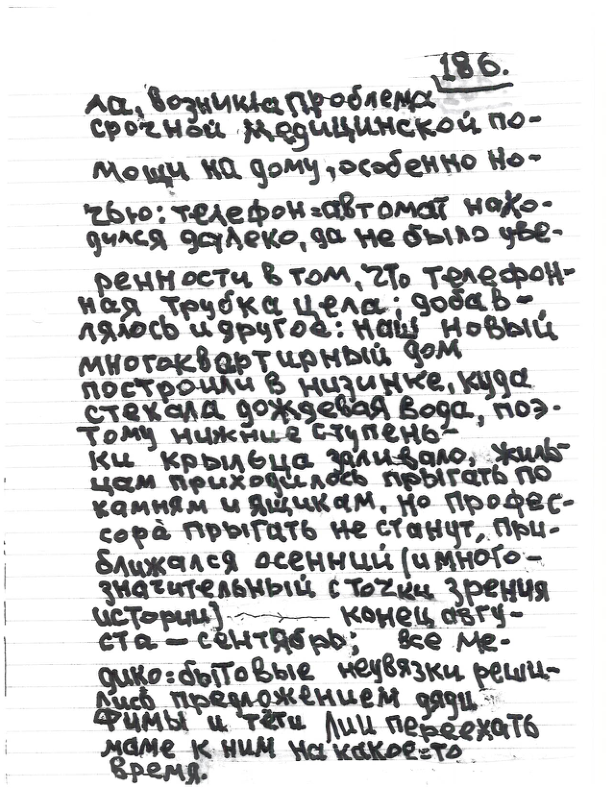 186.
ла, возникла проблема
срочной медицинской по-
мощи на дому, особенно но-
чью: телефон=автомат нахо-
дился далеко, да не было уве-
ренности в том, что телефон-
ная трубка цела; добав-
лялось и другое: наш новый
многоквартирный дом
построили в низинке, куда
стекала дождевая вода, поэ-
тому нижние ступень-
ки крыльца заливало, жиль-
цам приходилось прыгать по
камням и ящикам, но профес-
сора̀ прыгать не станут, при-
ближался осенний (и много-
значительный с точки зрения
истории) конец авгу-
ста – сентябрь; все ме-
дико=бытовые неувязки реши-
лись предложением дяди
Фимы и тёти Лии переехать
маме к ним на какое=то
время.